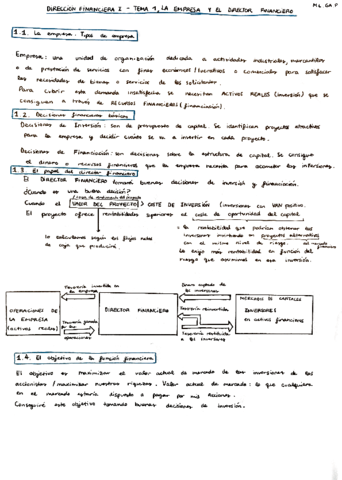 DIRECCIÓN FINANCIERA I - TEMA 1. LA EMPRESA Y EL DIRECTOR FINANCIERO
1.1. La empresa. Tipos de empresa
Empresa: una unidad de organización dedicada a actividades industriales, mercantiles
o de prestación de servicios con fines económicos/lucrativos o comerciales para satisfacer
las necesidades de bienes o servicios de los solicitantes.
Para cubrir esta demanda insatisfecha se necesitan ACTIVOS REALES (inversión) que se
consiguen a través de RECURSOS FINANCIEROS (financiación).
1.2. Decisiones financieras básicas
Decisiones de Inversión: son de presupuesto de capital. Se identifican proyectos atractivos
para la empresa y decidir cuánto se va a invertir en cada proyecto.
Decisiones de Financiación: son decisiones sobre la estructura de capital. Se consigue
el dinero o recursos financieros que la empresa necesita para acometer las inversiones.
1.3 El papel del director financiero
El DIRECTOR FINANCIERO tomará buenas decisiones de inversión y financiación.
¿Cuándo es una buena decisión?
Cuando el VALOR DEL PROYECTO > COSTE DE INVERSIÓN (inversiones con VAN positivo.
El proyecto ofrece rentabilidades superiores al coste de oportunidad del capital.
la rentabilidad que podrían obtener los
inversores invirtiendo en proyectos alternativos
con el mismo nivel de riesgo.
Lo calculamos según los flujos netos
de caja que producirá.
Se exige más rentabilidad en función del
riesgo que asumimos en esa inversión.
Tesorería invertida en
la empresa
Dinero captado de
los inversores
OPERACIONES DE
LA EMPRESA
(activos reales)
DIRECTOR FINANCIERO
MERCADO DE CAPITALES
INVERSORES
en activos financieros
Tesorería reinvertida
Tesorería generada
por las
operaciones
Tesorería restituida
a los inversores
1.4. El objetivo de la función financiera
El objetivo es maximizar el valor actual de mercado de las inversiones de los
accionistas / maximizar nuestra riqueza. Valor actual de mercado: lo que cualquiera
en el mercado estaría dispuesto a pagar por mis acciones.
Conseguiré este objetivo tomando buenas decisiones de inversión.